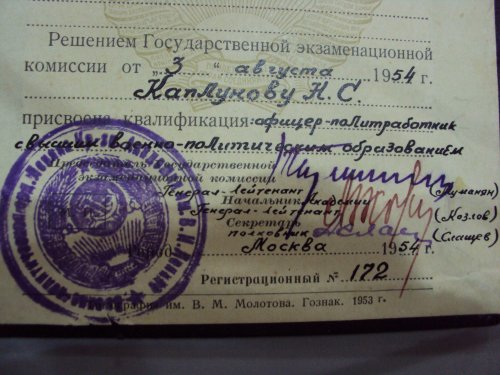 Решением Государственной экзаменационной
комиссии от "3" августа 1954 г.
Каплунову Н. С.
присвоена квалификация офицер-политработник
с высшим военно-политическим образованием
Председатель Государственной
экзаменационной комиссии
Генерал-Лейтенант (Туманян)
Начальник Академии
Генерал-Лейтенант (Козлов)
Секретарь
полковник (Слащев)
Москва 1954 г.
Регистрационный № 172
им. В. М. Молотова. Гознак. 1953 г.